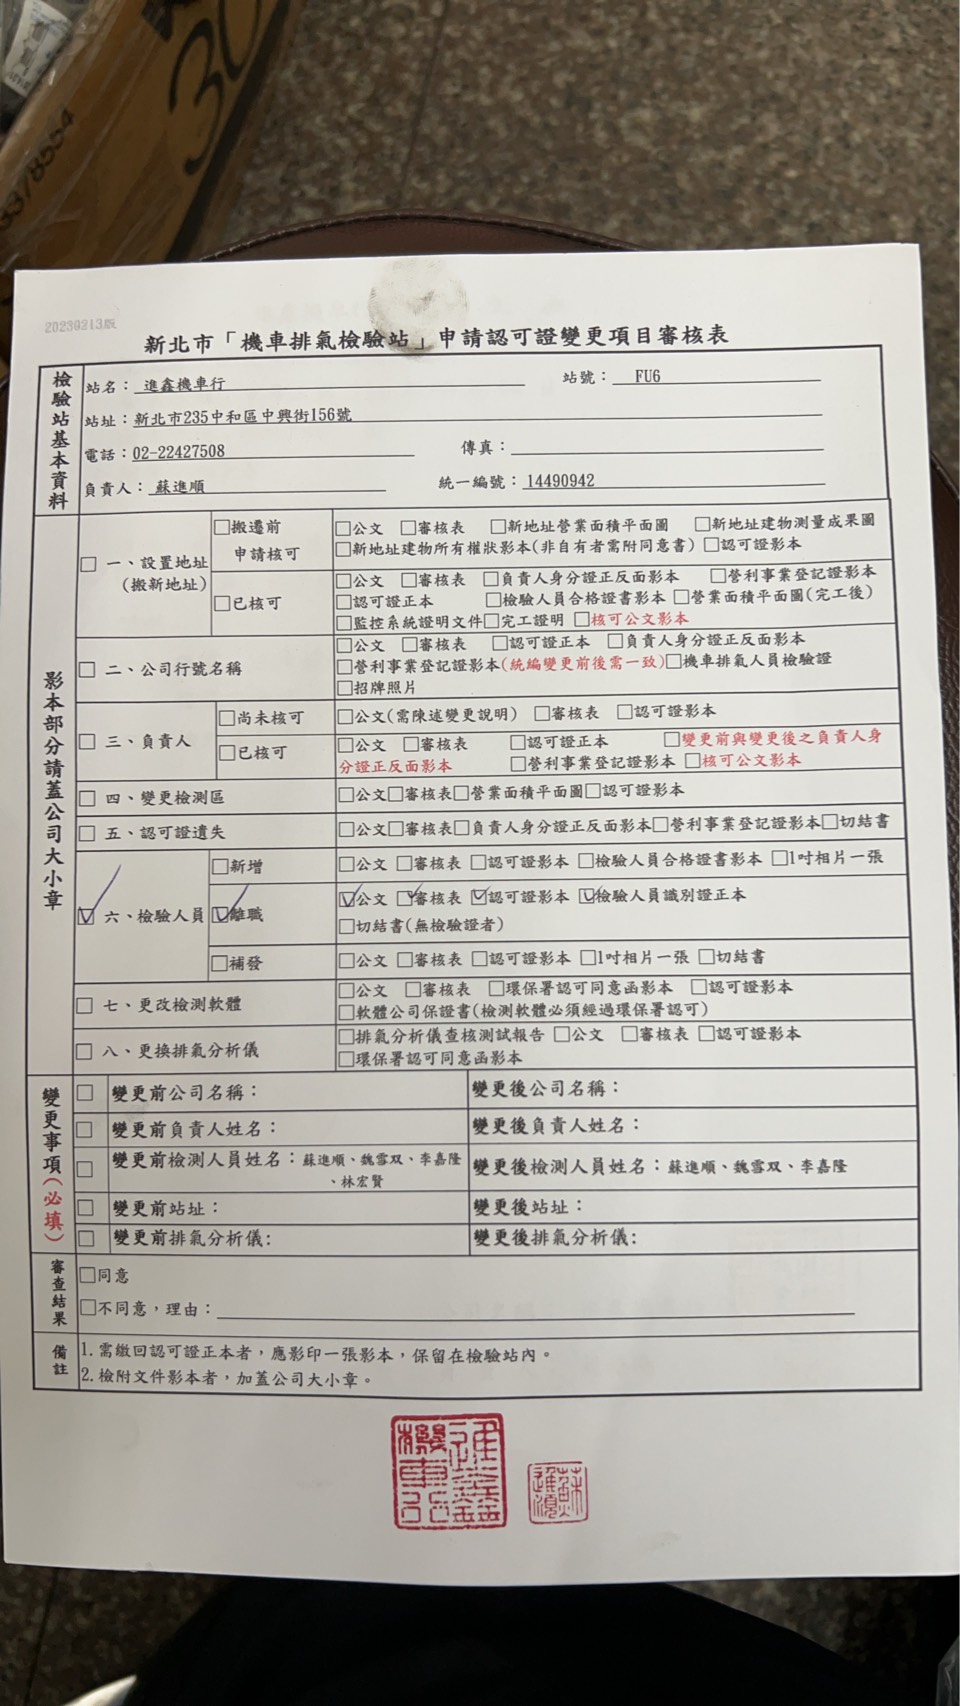 30
33/8554
20230213版
新北市「機車排氣檢驗站」申請認可證變更項目審核表
檢驗站基本資料
站名：進鑫機車行 站號：FU6
站址：新北市235中和區中興街156號
電話：02-22427508 傳真：
負責人：蘇進順 統一編號：14490942
影本部分請蓋公司大小章
□ 一、設置地址
(搬新地址)
□搬遷前
申請核可
□公文 □審核表 □新地址營業面積平面圖 □新地址建物測量成果圖
□新地址建物所有權狀影本(非自有者需附同意書) □認可證影本
□已核可
□公文 □審核表 □負責人身分證正反面影本 □營利事業登記證影本
□認可證正本 □檢驗人員合格證書影本 □營業面積平面圖(完工後)
□監控系統證明文件□完工證明 □核可公文影本
□ 二、公司行號名稱
□公文 □審核表 □認可證正本 □負責人身分證正反面影本
□營利事業登記證影本(統編變更前後需一致)□機車排氣人員檢驗證
□招牌照片
□ 三、負責人
□尚未核可
□公文(需陳述變更說明) □審核表 □認可證影本
□已核可
□公文 □審核表 □認可證正本 □變更前與變更後之負責人身
分證正反面影本 □營利事業登記證影本 □核可公文影本
□ 四、變更檢測區
□公文□審核表□營業面積平面圖□認可證影本
□ 五、認可證遺失
□公文□審核表□負責人身分證正反面影本□營利事業登記證影本□切結書
☑ 六、檢驗人員
□新增
□公文 □審核表 □認可證影本 □檢驗人員合格證書影本 □1吋相片一張
☑離職
☑公文 ☑審核表 ☑認可證影本 ☑檢驗人員識別證正本
□切結書(無檢驗證者)
□補發
□公文 □審核表 □認可證影本 □1吋相片一張 □切結書
□ 七、更改檢測軟體
□公文 □審核表 □環保署認可同意函影本 □認可證影本
□軟體公司保證書(檢測軟體必須經過環保署認可)
□ 八、更換排氣分析儀
□排氣分析儀查核測試報告 □公文 □審核表 □認可證影本
□環保署認可同意函影本
變更事項(必填)
□ 變更前公司名稱： 變更後公司名稱：
□ 變更前負責人姓名： 變更後負責人姓名：
□ 變更前檢測人員姓名：蘇進順、魏雪双、李嘉隆 變更後檢測人員姓名：蘇進順、魏雪双、李嘉隆
、林宏賢
□ 變更前站址： 變更後站址：
□ 變更前排氣分析儀: 變更後排氣分析儀:
審查結果
□同意
□不同意，理由：
備註
1.需繳回認可證正本者，應影印一張影本，保留在檢驗站內。
2.檢附文件影本者，加蓋公司大小章。
進鑫機車行
蘇進順